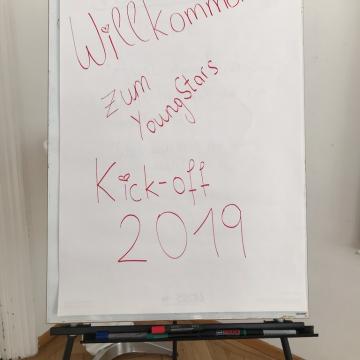 Willkommen
zum
YoungStars
Kick-off
2019